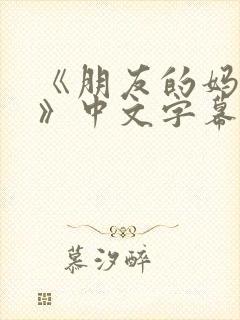 《朋友的妈
》中文字幕
慕汐醉